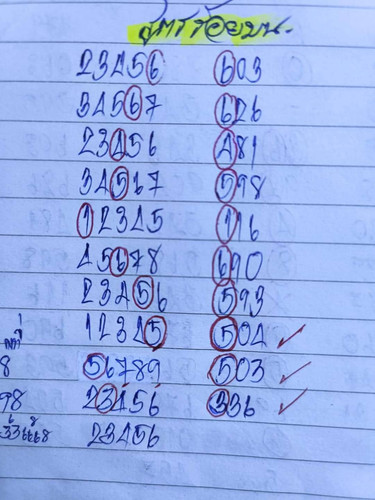 สูตรร้อยบน
23456 603
34567 626
23456 481
34567 598
12345 116
45678 690
23456 593
12345 504 ✓
8 56789 503 ✓
98 23456 336 ✓
23456